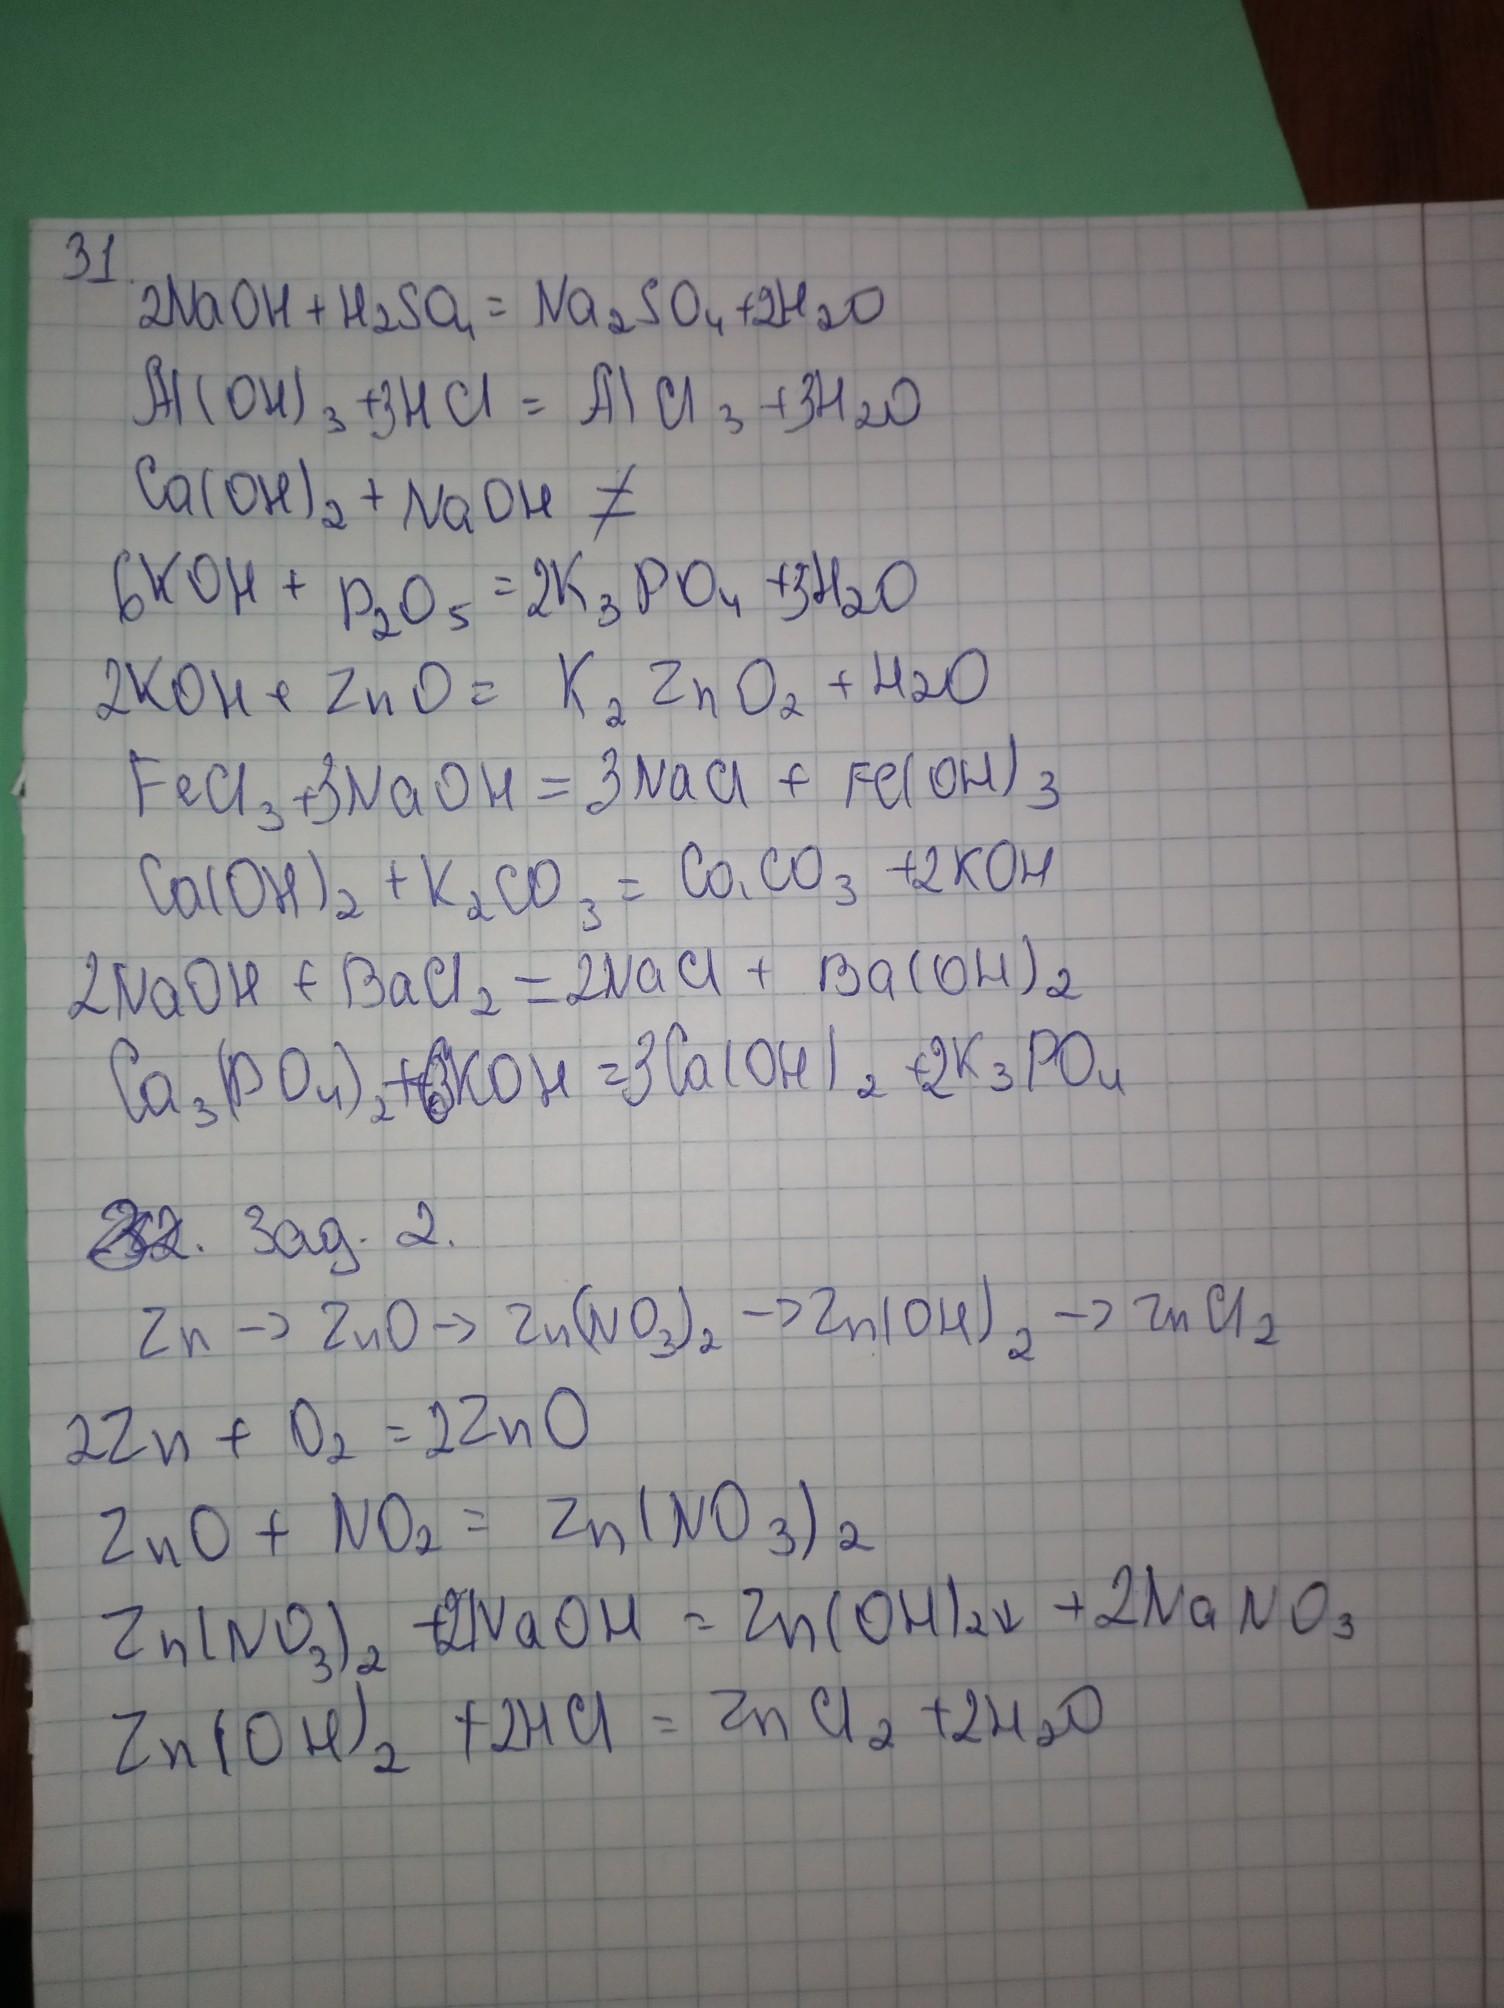 31.
2NaOH + H2SO4 = Na2SO4 + 2H2O
Al(OH)3 + 3HCl = AlCl3 + 3H2O
Ca(OH)2 + NaOH ≠
6KOH + P2O5 = 2K3PO4 + 3H2O
2KOH + ZnO = K2ZnO2 + H2O
FeCl3 + 3NaOH = 3NaCl + Fe(OH)3
Ca(OH)2 + K2CO3 = CaCO3 + 2KOH
2NaOH + BaCl2 = 2NaCl + Ba(OH)2
Ca3(PO4)2 + 6KOH = 3Ca(OH)2 + 2K3PO4
32. Зад. 2.
Zn -> ZnO -> Zn(NO3)2 -> Zn(OH)2 -> ZnCl2
2Zn + O2 = 2ZnO
ZnO + NO2 = Zn(NO3)2
Zn(NO3)2 + 2NaOH = Zn(OH)2↓ + 2NaNO3
Zn(OH)2 + 2HCl = ZnCl2 + 2H2O